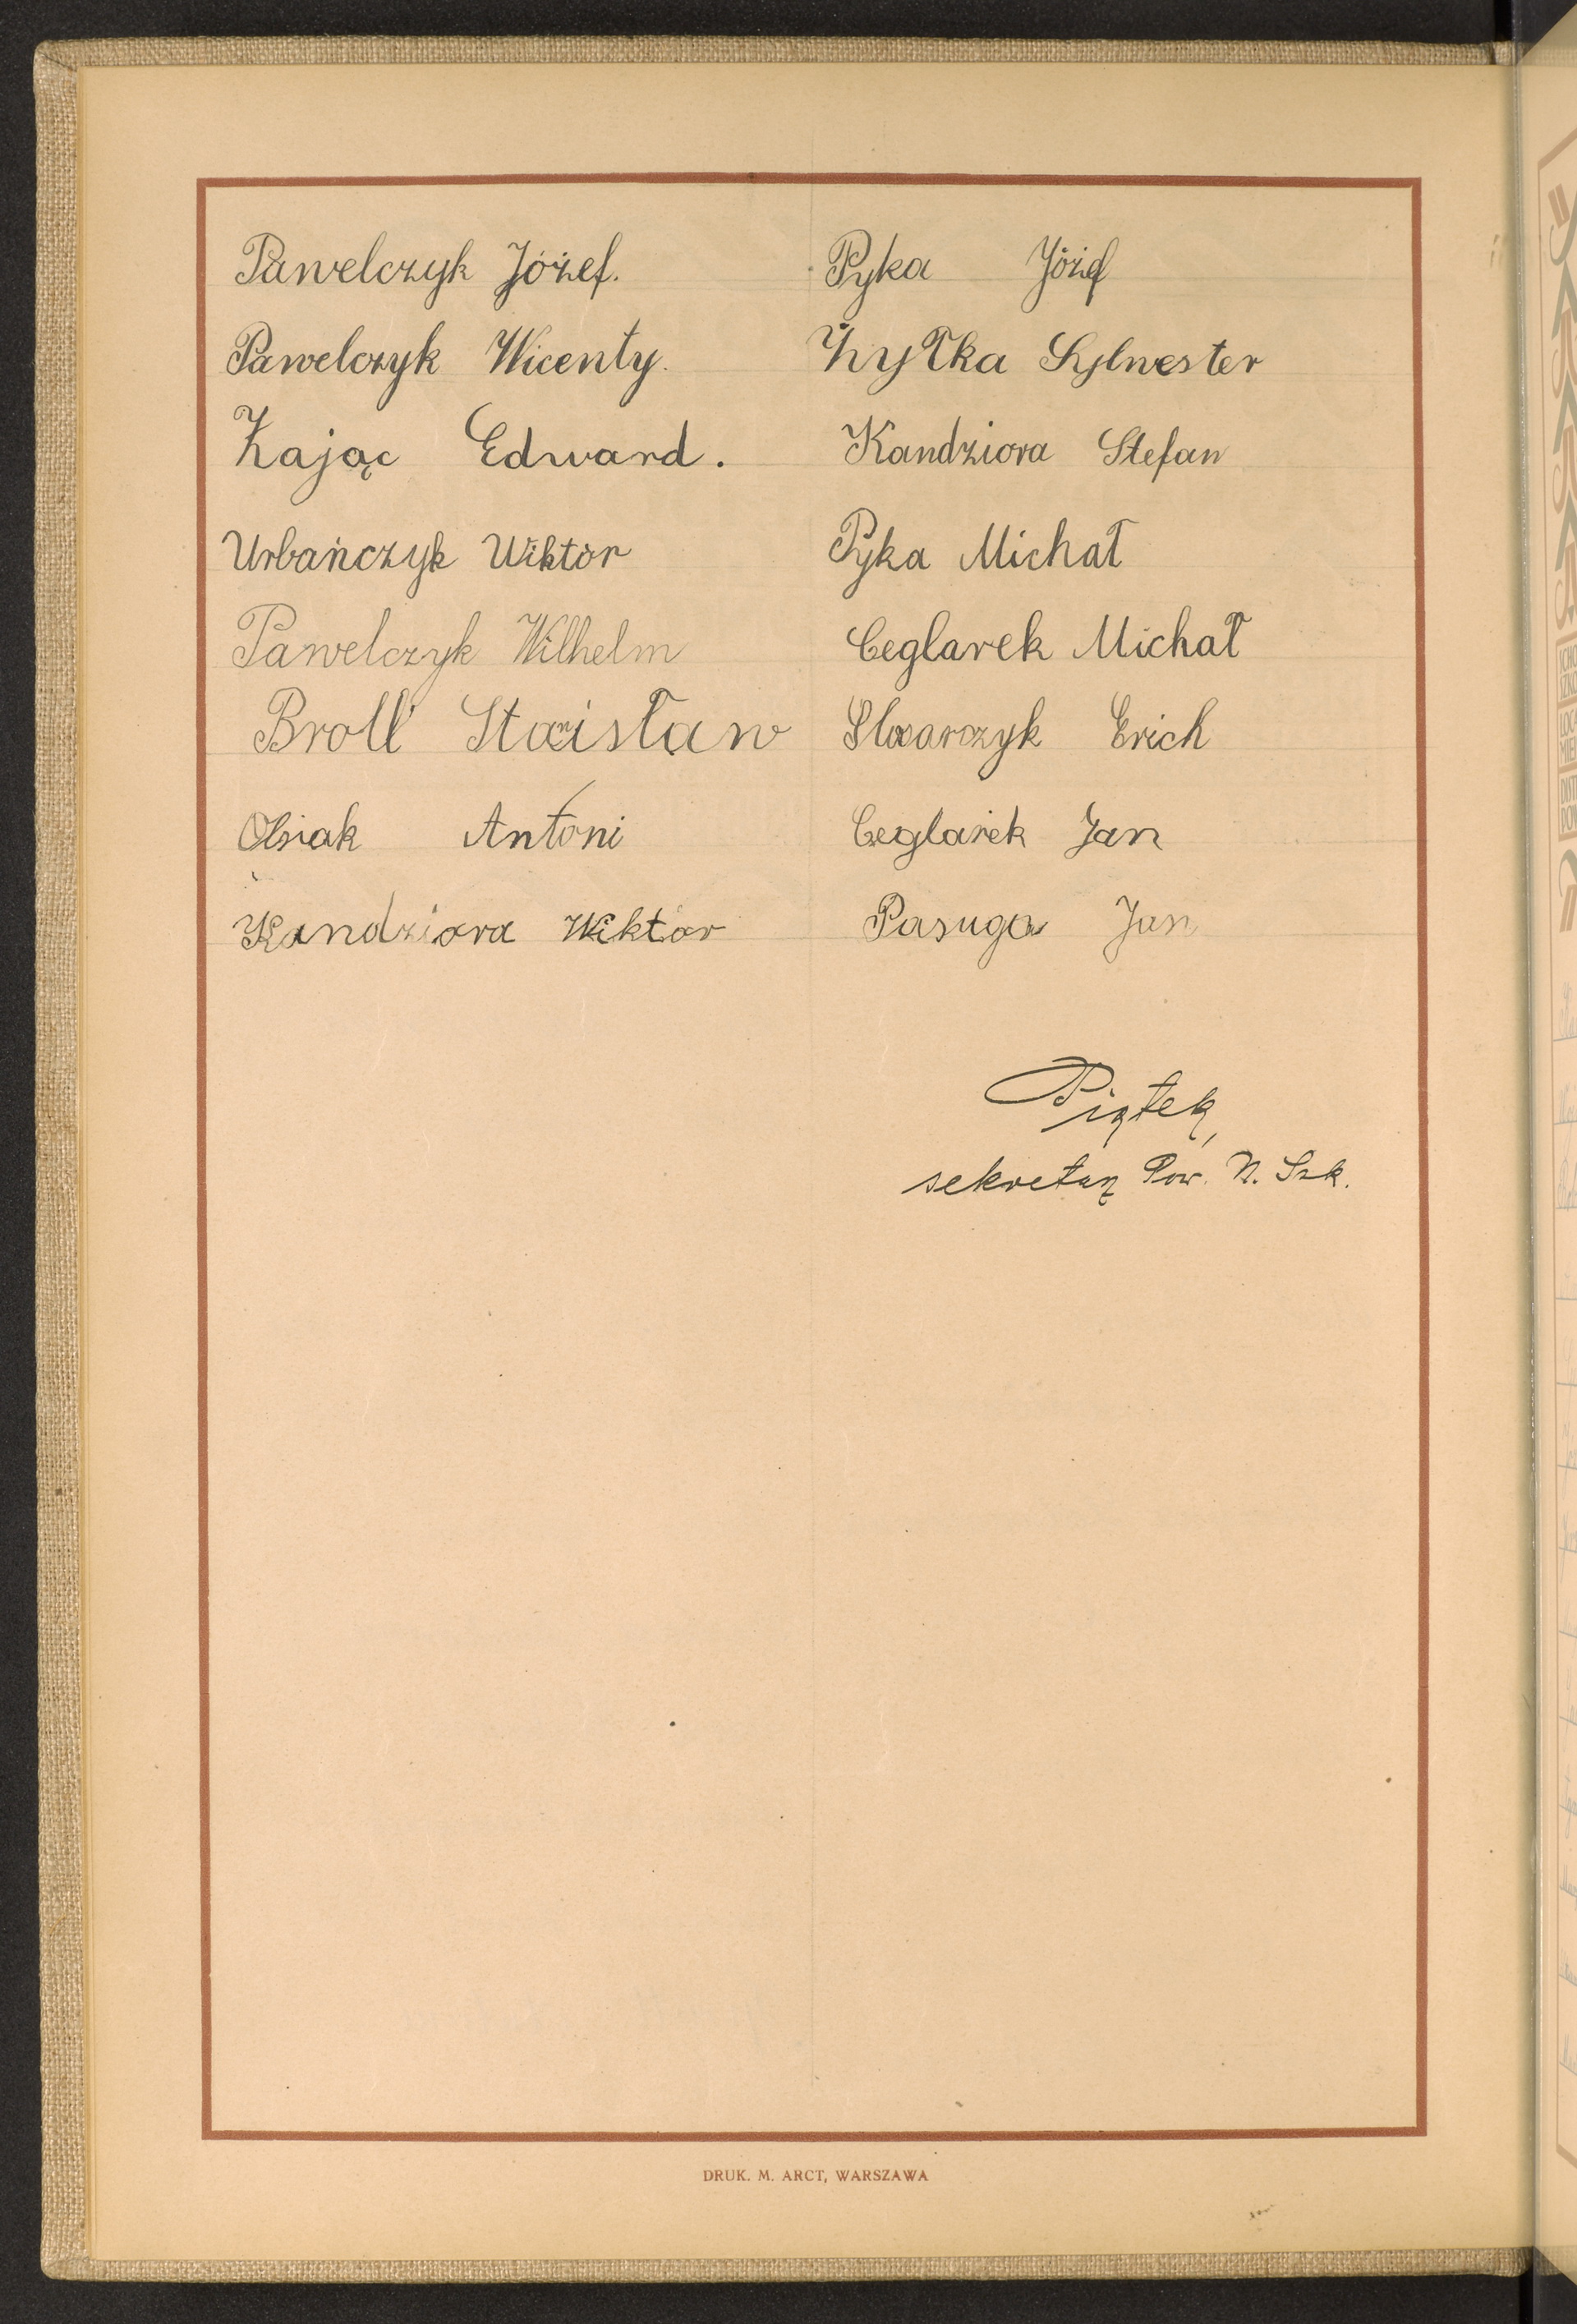 Pawelczyk Józef.
Pawelczyk Wicenty.
Zając Edward.
Urbańczyk Wiktor
Pawelczyk Wilhelm
Broll Stanisław
Antoni
Kandziora Wiktor
Pyka Józef
Żyłka Sylwester
Kandziora Stefan
Pyka Michał
Ceglarek Michał
Erich
Ceglarek Jan
Pasuga Jan
Piątek,
sekretarz Pow. N. Szk.
DRUK. M. ARCT, WARSZAWA